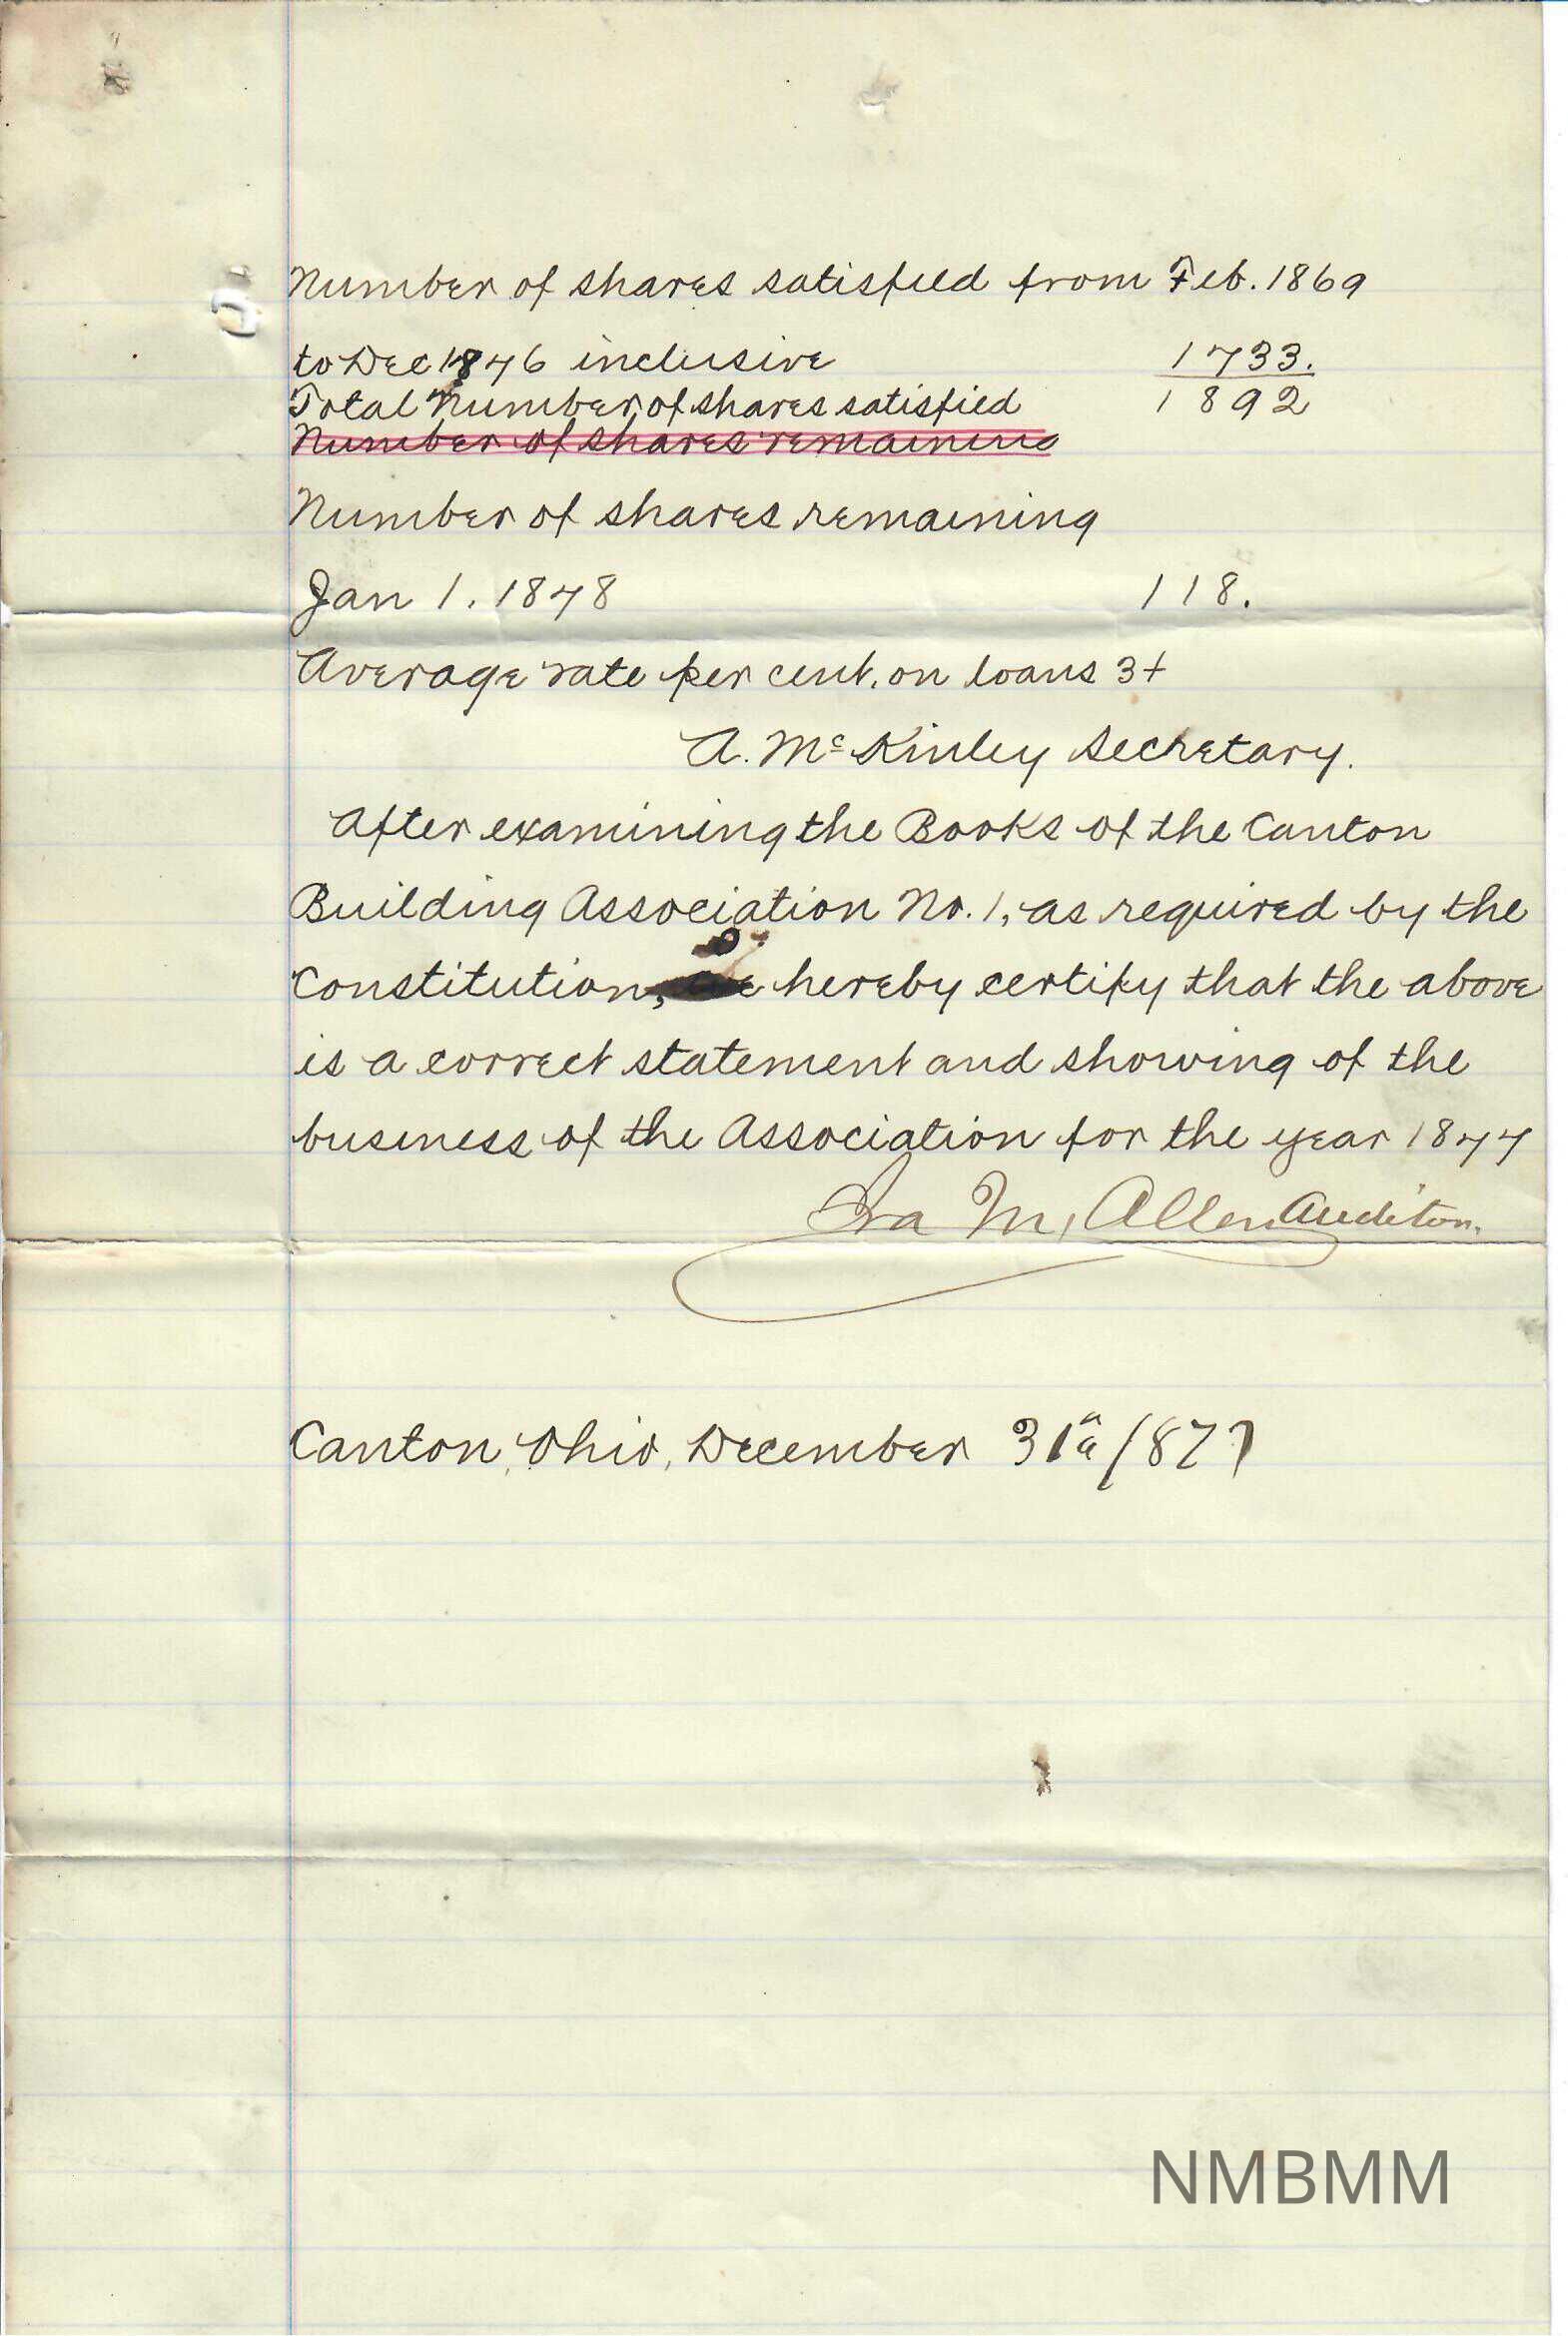 Number of shares satisfied from Feb. 1869
to Dec 1876 inclusive 1733.
Total Number of shares satisfied 1892
Number of shares remaining
Number of shares remaining
Jan 1. 1878 118.
Average rate per cent. on loans 3+
A. McKinley Secretary.
After examining the Books of the Canton
Building Association No. 1, as required by the
Constitution, hereby certify that the above
is a correct statement and showing of the
business of the Association for the year 1877
Ira M. Allen Auditor.
Canton, Ohio, December 31 1877
NMBMM